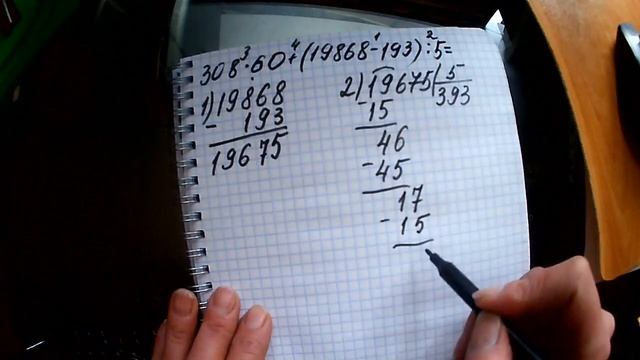 308·³60+⁴(19868-¹193):²5=
1) 19868
- 193
19675
2) 19675 | 5
393
-15
46
-45
17
-15